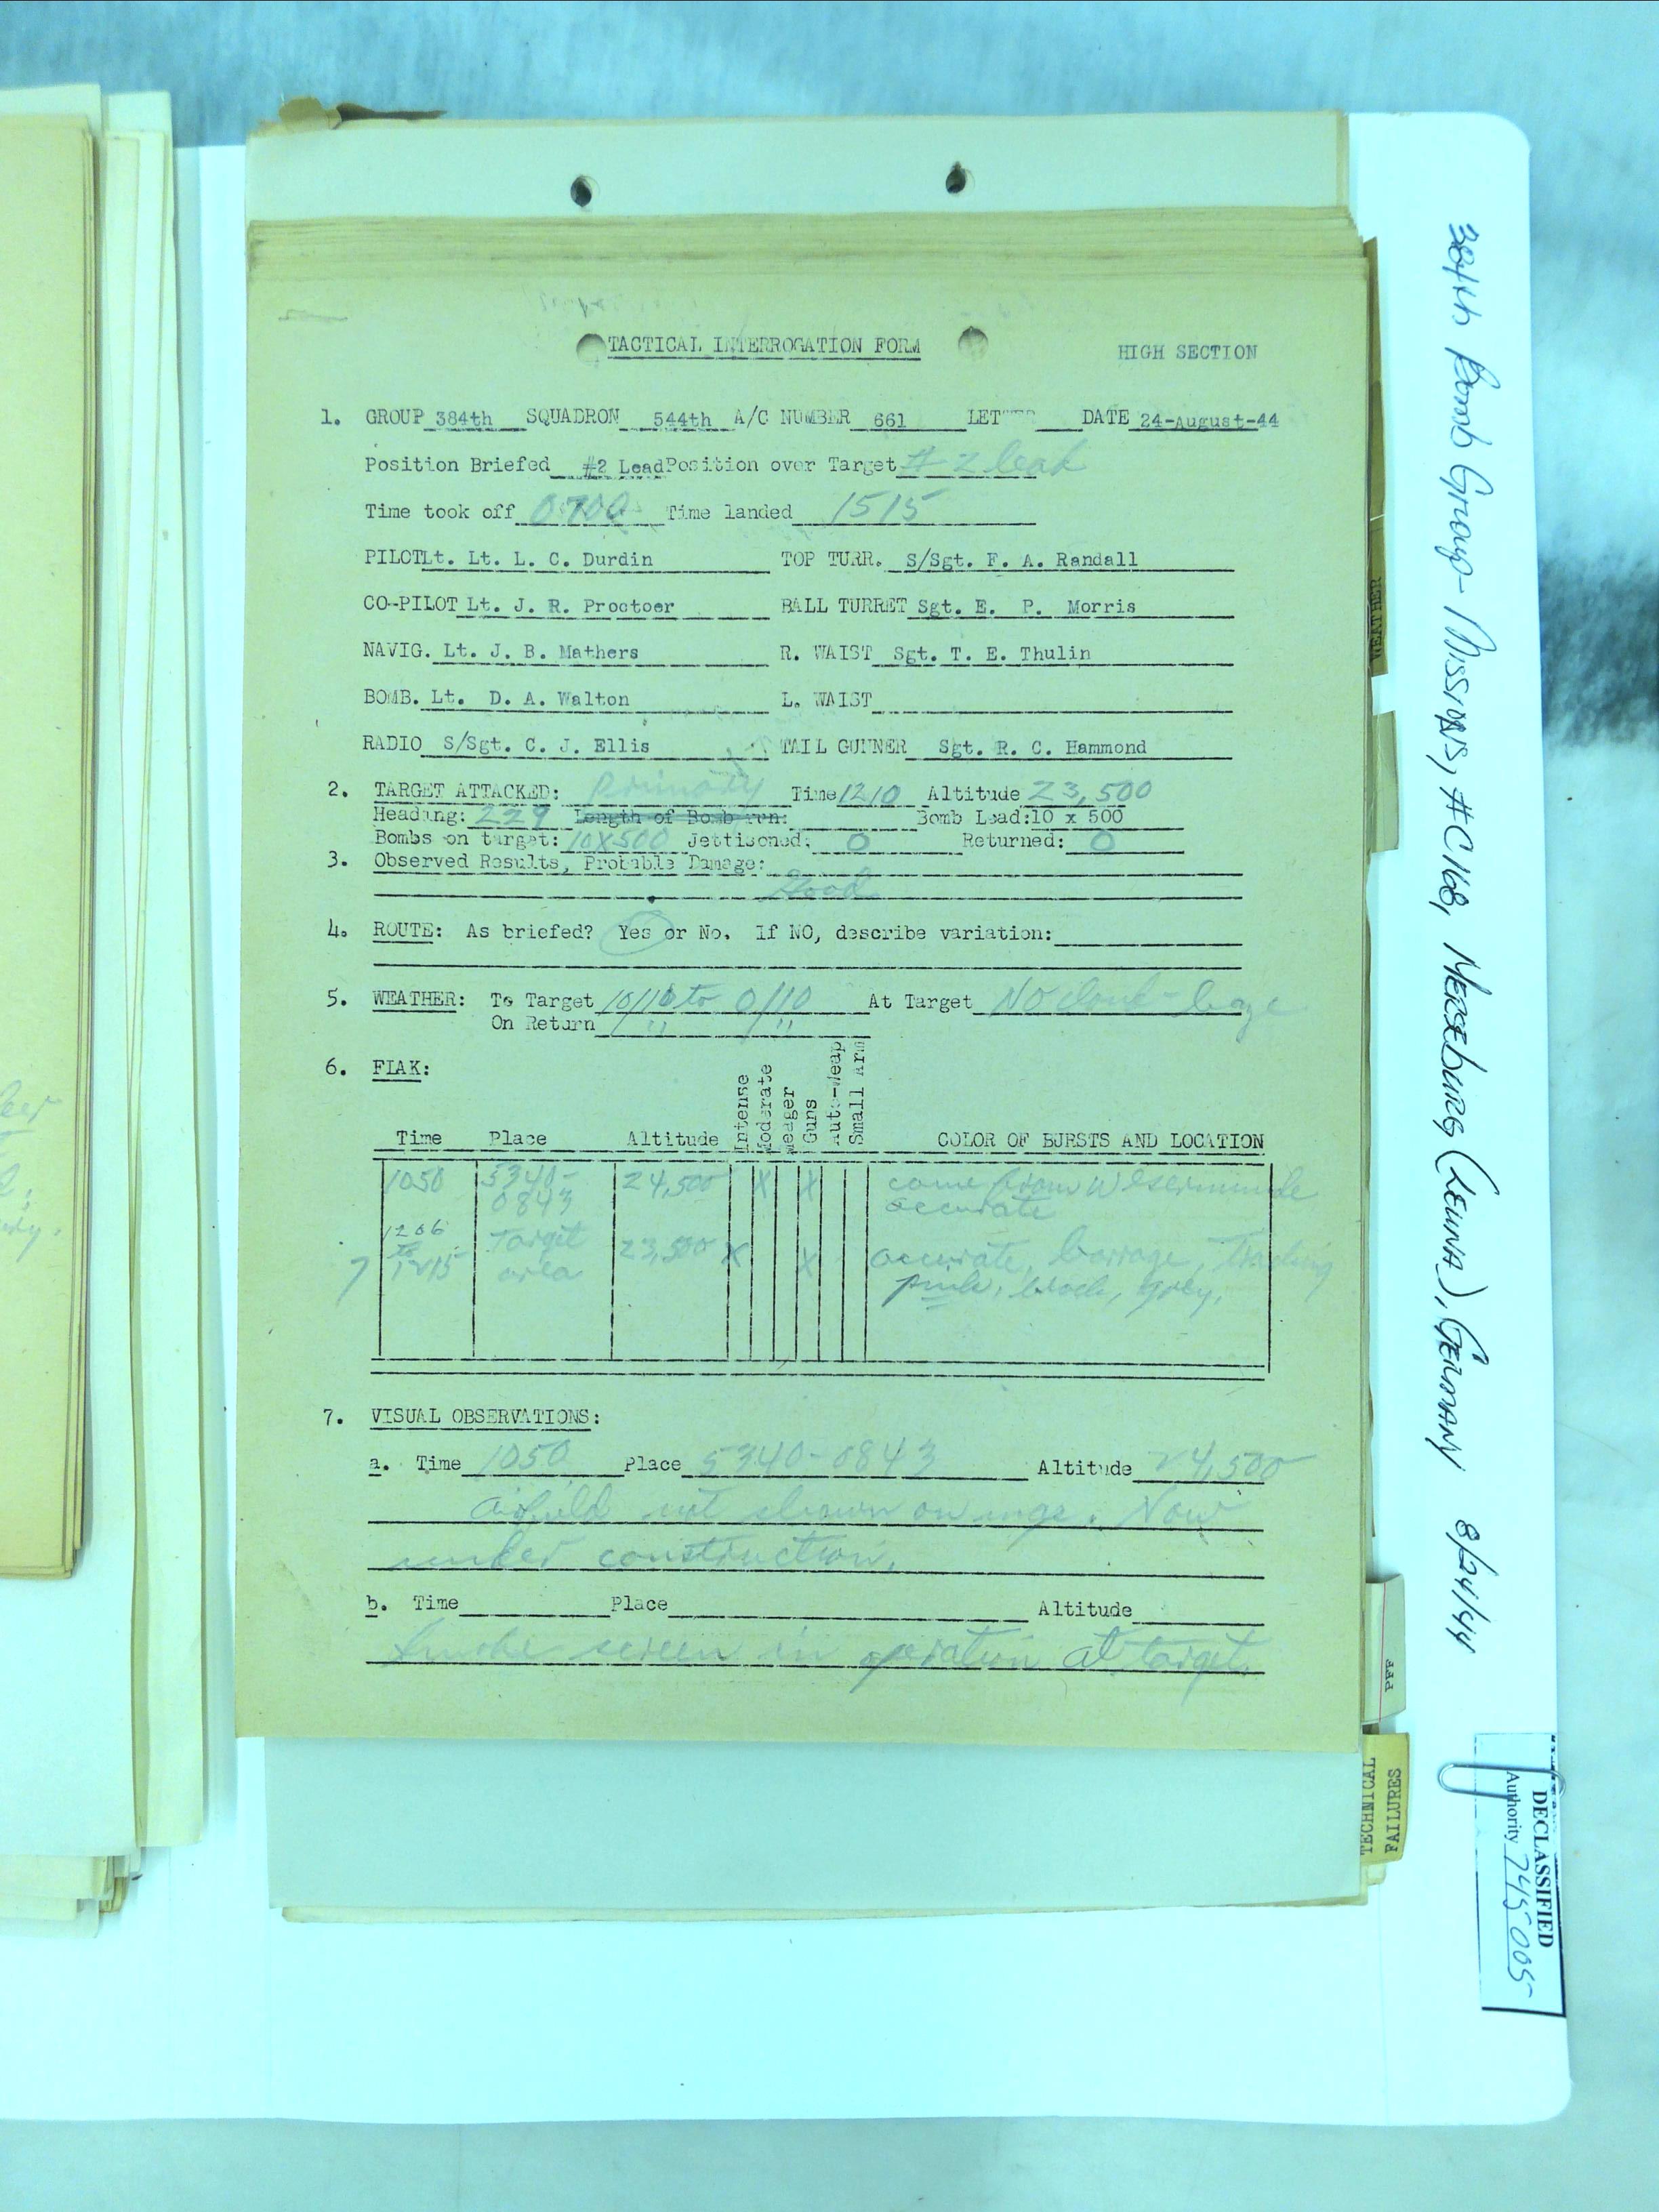 TACTICAL INTERROGATION FORM HIGH SECTION
1. GROUP 384th SQUADRON 544th A/C NUMBER 661 LETTER DATE 24-August-44
Position Briefed #2 Lead Position over Target #2 lead
Time took off 0700 Time landed 1515
PILOT Lt. Lt. L. C. Durdin TOP TURR. S/Sgt. F. A. Randall
CO-PILOT Lt. J. R. Proctoer BALL TURRET Sgt. E. P. Morris
NAVIG. Lt. J. B. Mathers R. WAIST Sgt. T. E. Thulin
BOMB. Lt. D. A. Walton L. WAIST
RADIO S/Sgt. C. J. Ellis TAIL GUNNER Sgt. R. C. Hammond
2. TARGET ATTACKED: Primary Time 1210 Altitude 23,500
Heading: 229 Length of Bomb run: Bomb Load: 10 x 500
Bombs on target: 10X500 Jettisoned: 0 Returned: 0
3. Observed Results, Probable Damage:
Good
4. ROUTE: As briefed? Yes or No. If NO, describe variation:
5. WEATHER: To Target 10/10 to 0/10 At Target No cloud - haze
On Return " "
6. FLAK:
Intense
Moderate
Meager
Guns
Auto-Weap
Small Arm
Time Place Altitude COLOR OF BURSTS AND LOCATION
1050 5340- 24,500 X X came from Wesermunde
0843 accurate
1206 Target 23,500 X X accurate, barrage, tracking
to
1215 area pink, black, grey,
7
7. VISUAL OBSERVATIONS:
a. Time 1050 Place 5340-0843 Altitude 24,500
airfield not shown on map. Now
under construction.
b. Time Place Altitude
Smoke screen in operation at target.
WEATHER
PFF
TECHNICAL
FAILURES
384th Bomb Group - Missions, #C168, MERSEBURG (LEUNA), GERMANY 8/24/44
DECLASSIFIED
Authority 745005